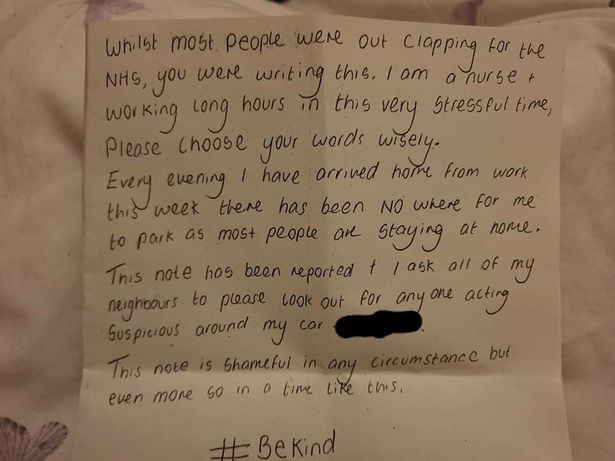 Whilst most people were out Clapping for the
NHS, you were writing this. I am a nurse +
working long hours in this very stressful time,
Please choose your words wisely.
Every evening I have arrived home from work
this week there has been NO where for me
to park as most people are staying at home.
This note has been reported + I ask all of my
neighbours to please look out for any one acting
Suspicious around my car
This note is Shameful in any circumstance but
even more so in a time like this.
#BeKind